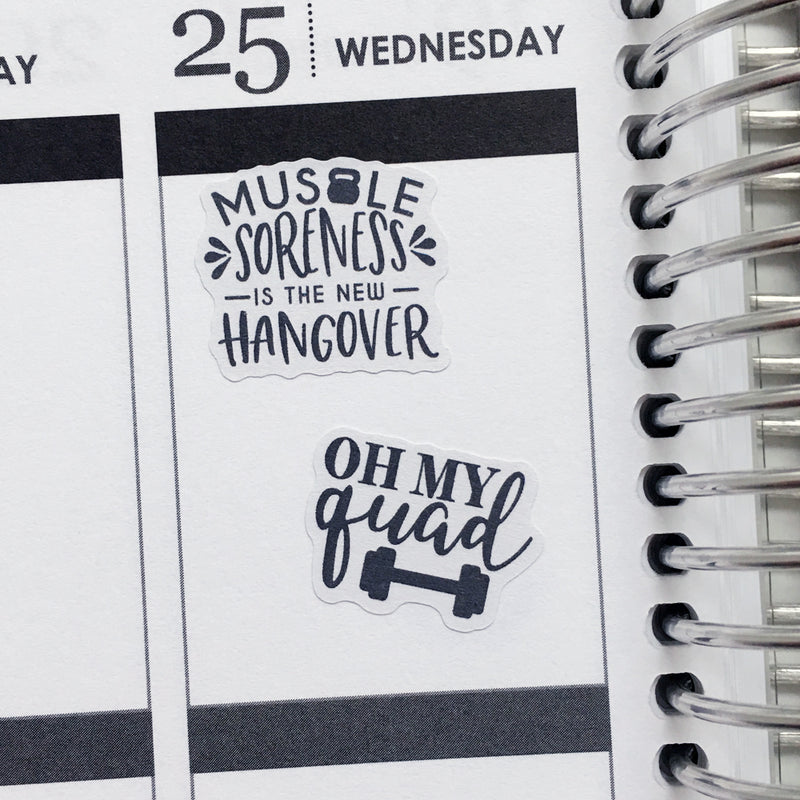 AY
25
WEDNESDAY
MUSCLE
SORENESS
IS THE NEW
HANGOVER
OH MY
quad